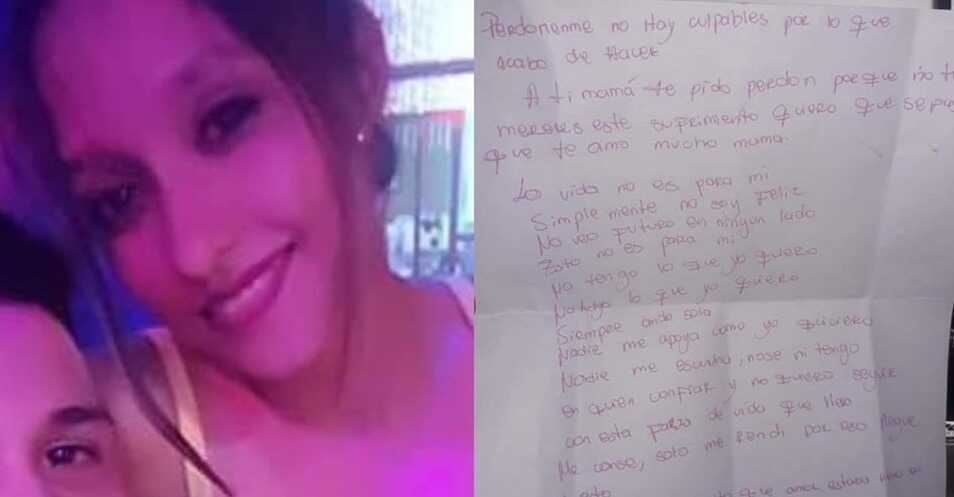 Perdonenme no Hay culpables por lo que
acabo de Hacer
A ti mamá te pido perdon porque no te
mereces este suprimento quero que sepas
que te amo mucho mama.
La vida no es para mi
Simple mente no soy Feliz
No veo Futuro en ningun lado
Esto no es para mi
No tengo lo que yo quero
No tengo lo que yo quero
Siempre ando sola
Nadie me apoya como yo quiciera
Nadie me escucha, nose ni tengo
en quien confiar y no quero seguir
con esta farza de vida que llevo
Me canse, solo me rendi por eso llegue
que amor